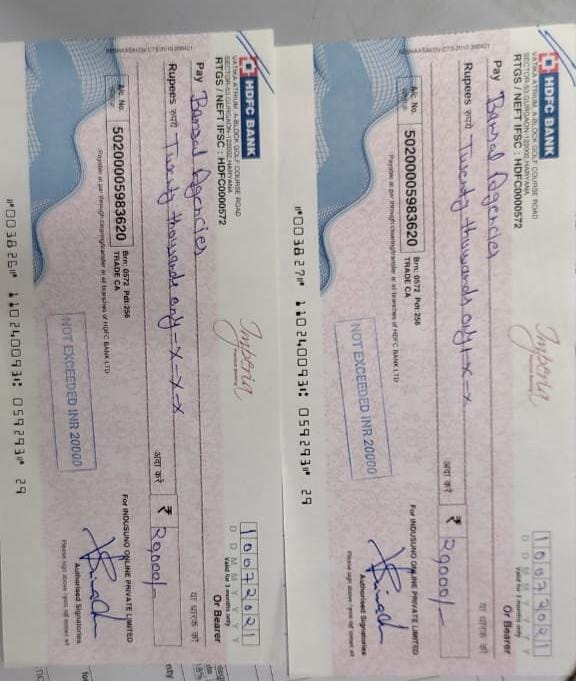 HDFC BANK
VATIKA ATRIUM, A-BLOCK GOLF COURSE ROAD
SECTOR-53 GURGAON-122002, HARYANA
RTGS / NEFT IFSC : HDFC0000572
Imperia
10072021
D D M M Y Y Y Y
Valid for 3 months only
Pay Bansal Agencies
Or Bearer
या धारक को
Rupees रुपये Twenty thousands only-x-x-x
अदा करें
₹ 20000/-
A/c. No.
50200005983620
Brn: 0572 Pdt: 256
TRADE CA
Payable at par through clearing/transfer at all branches of HDFC BANK LTD
NOT EXCEEDED INR 20000
For INDUSUNO ONLINE PRIVATE LIMITED
Authorised Signatories
Please sign above
⑈003826⑈ 110240093⑆ 059293⑈ 29
HDFC BANK
VATIKA ATRIUM, A-BLOCK GOLF COURSE ROAD
SECTOR-53 GURGAON-122002, HARYANA
RTGS / NEFT IFSC : HDFC0000572
Imperia
10072021
D D M M Y Y Y Y
Valid for 3 months only
Pay Bansal Agencies
Or Bearer
या धारक को
Rupees रुपये Twenty thousands only-x-x
अदा करें
₹ 20000/-
A/c. No.
50200005983620
Brn: 0572 Pdt: 256
TRADE CA
Payable at par through clearing/transfer at all branches of HDFC BANK LTD
NOT EXCEEDED INR 20000
For INDUSUNO ONLINE PRIVATE LIMITED
Authorised Signatories
Please sign above
⑈003827⑈ 110240093⑆ 059293⑈ 29